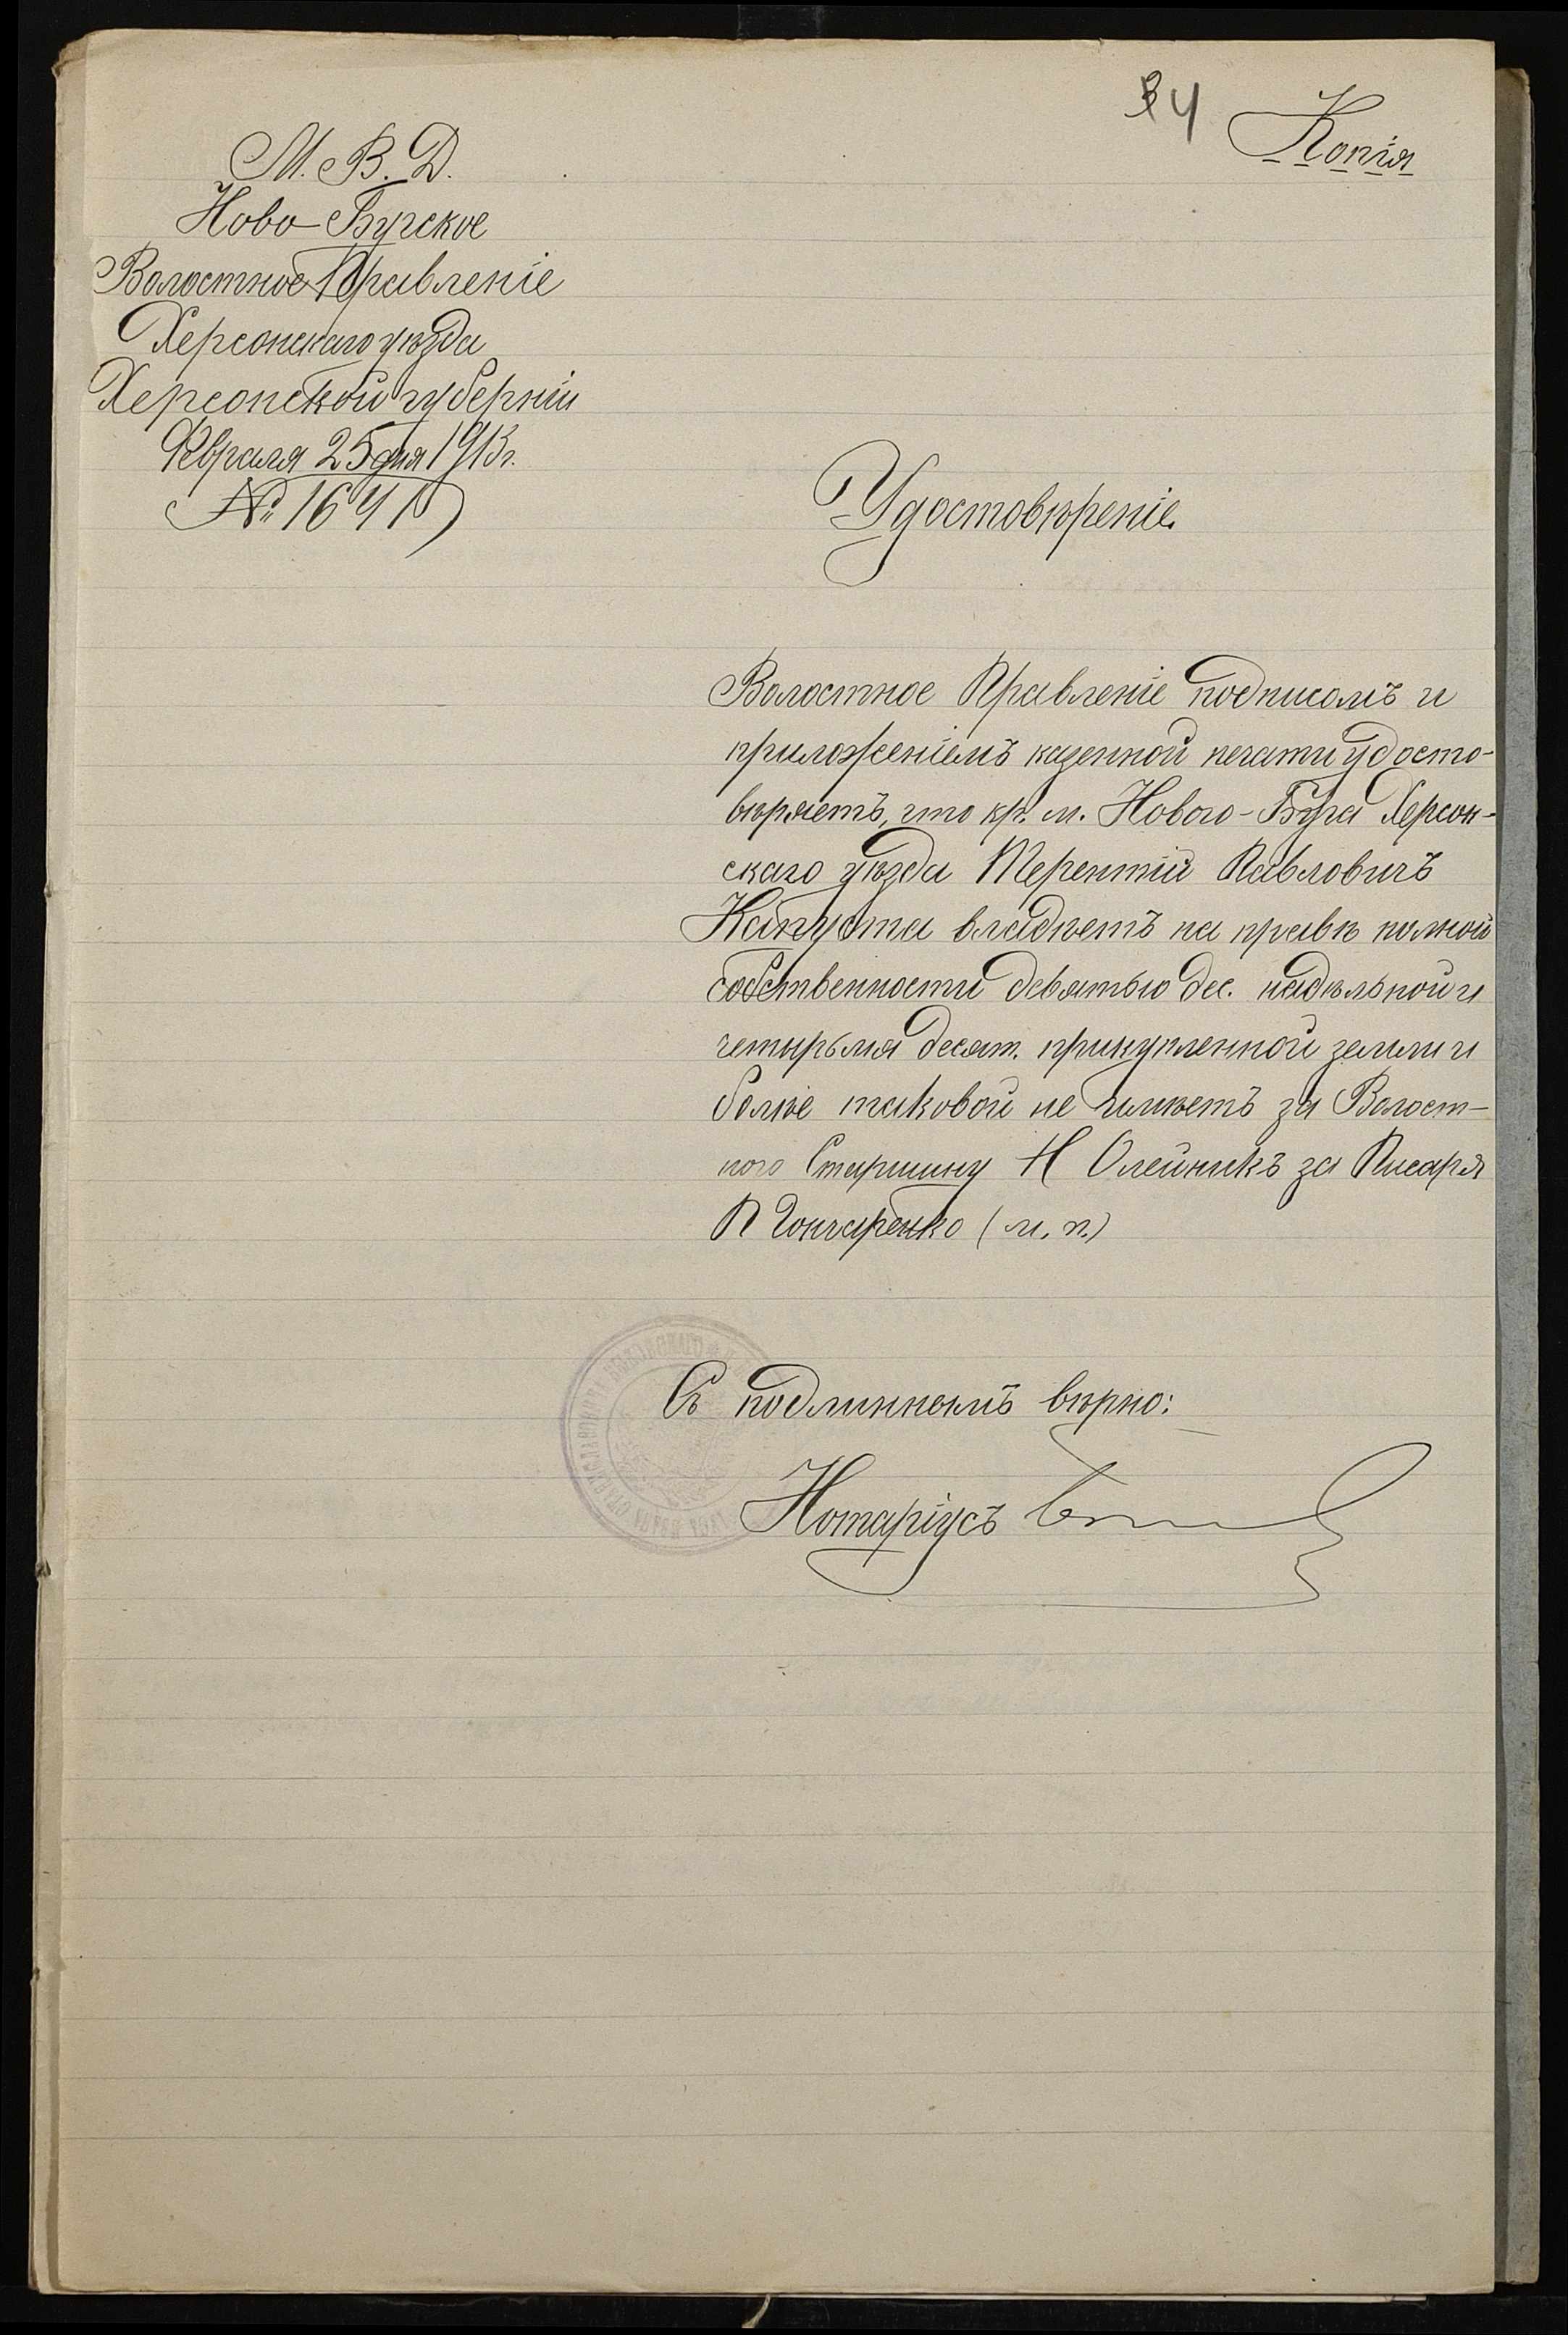 4
Копія
М. В. Д.
Ново-Бугское
Волостное Правленіе
Херсонскаго уѣзда
Херсонской губерніи
Февраля 25 дня 1913 г.
№ 1641
Удостовѣреніе
Волостное Правленіе подписомъ и
приложеніемъ казенной печати удосто-
вѣряетъ, что кр. м. Новаго-Буга Херсон-
скаго уѣзда Терентій Павловичъ
Капуста владѣетъ на правѣ полной
собственности девятью дес. надѣльной и
четырьмя десят. прикупленной земли и
болѣе таковой не имѣетъ за Волост-
ного Старшину Н Олейникъ за Писаря
П Гончаренко (м. п.)
Съ подлиннымъ вѣрно:
Нотаріусъ